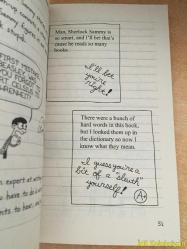 FIRST
YOU
CELSIUS
FAHRENHEIT
Man, Sherlock Sammy is
so smart, and I'll bet that's
cause he reads so many
books.
I'll bet
you're
right!
There were a bunch of
hard words in this book,
but I looked them up in
the dictionary so now I
know what they mean.
I guess you're a
bit of a "sleuth"
yourself!
A+
expert at
have to
to do is
and
51